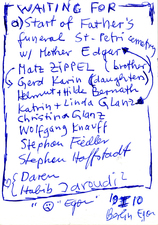 WAITING FOR
a) Start of Father's
funeral St-Petri cemetry
w/ Mother Edgar
Matz ZIPPEL (brother
Gerd Karin (daughters)
Helmut + Hilde Bermath
Katrin + Linda Glanz
Christina Glanz
Wolfgang Knauff
Stephan Fiedler
Stephan Hoffstadt
Daren
Habib Jaroudi
"Egon" 19 II 10
Berlin Egon